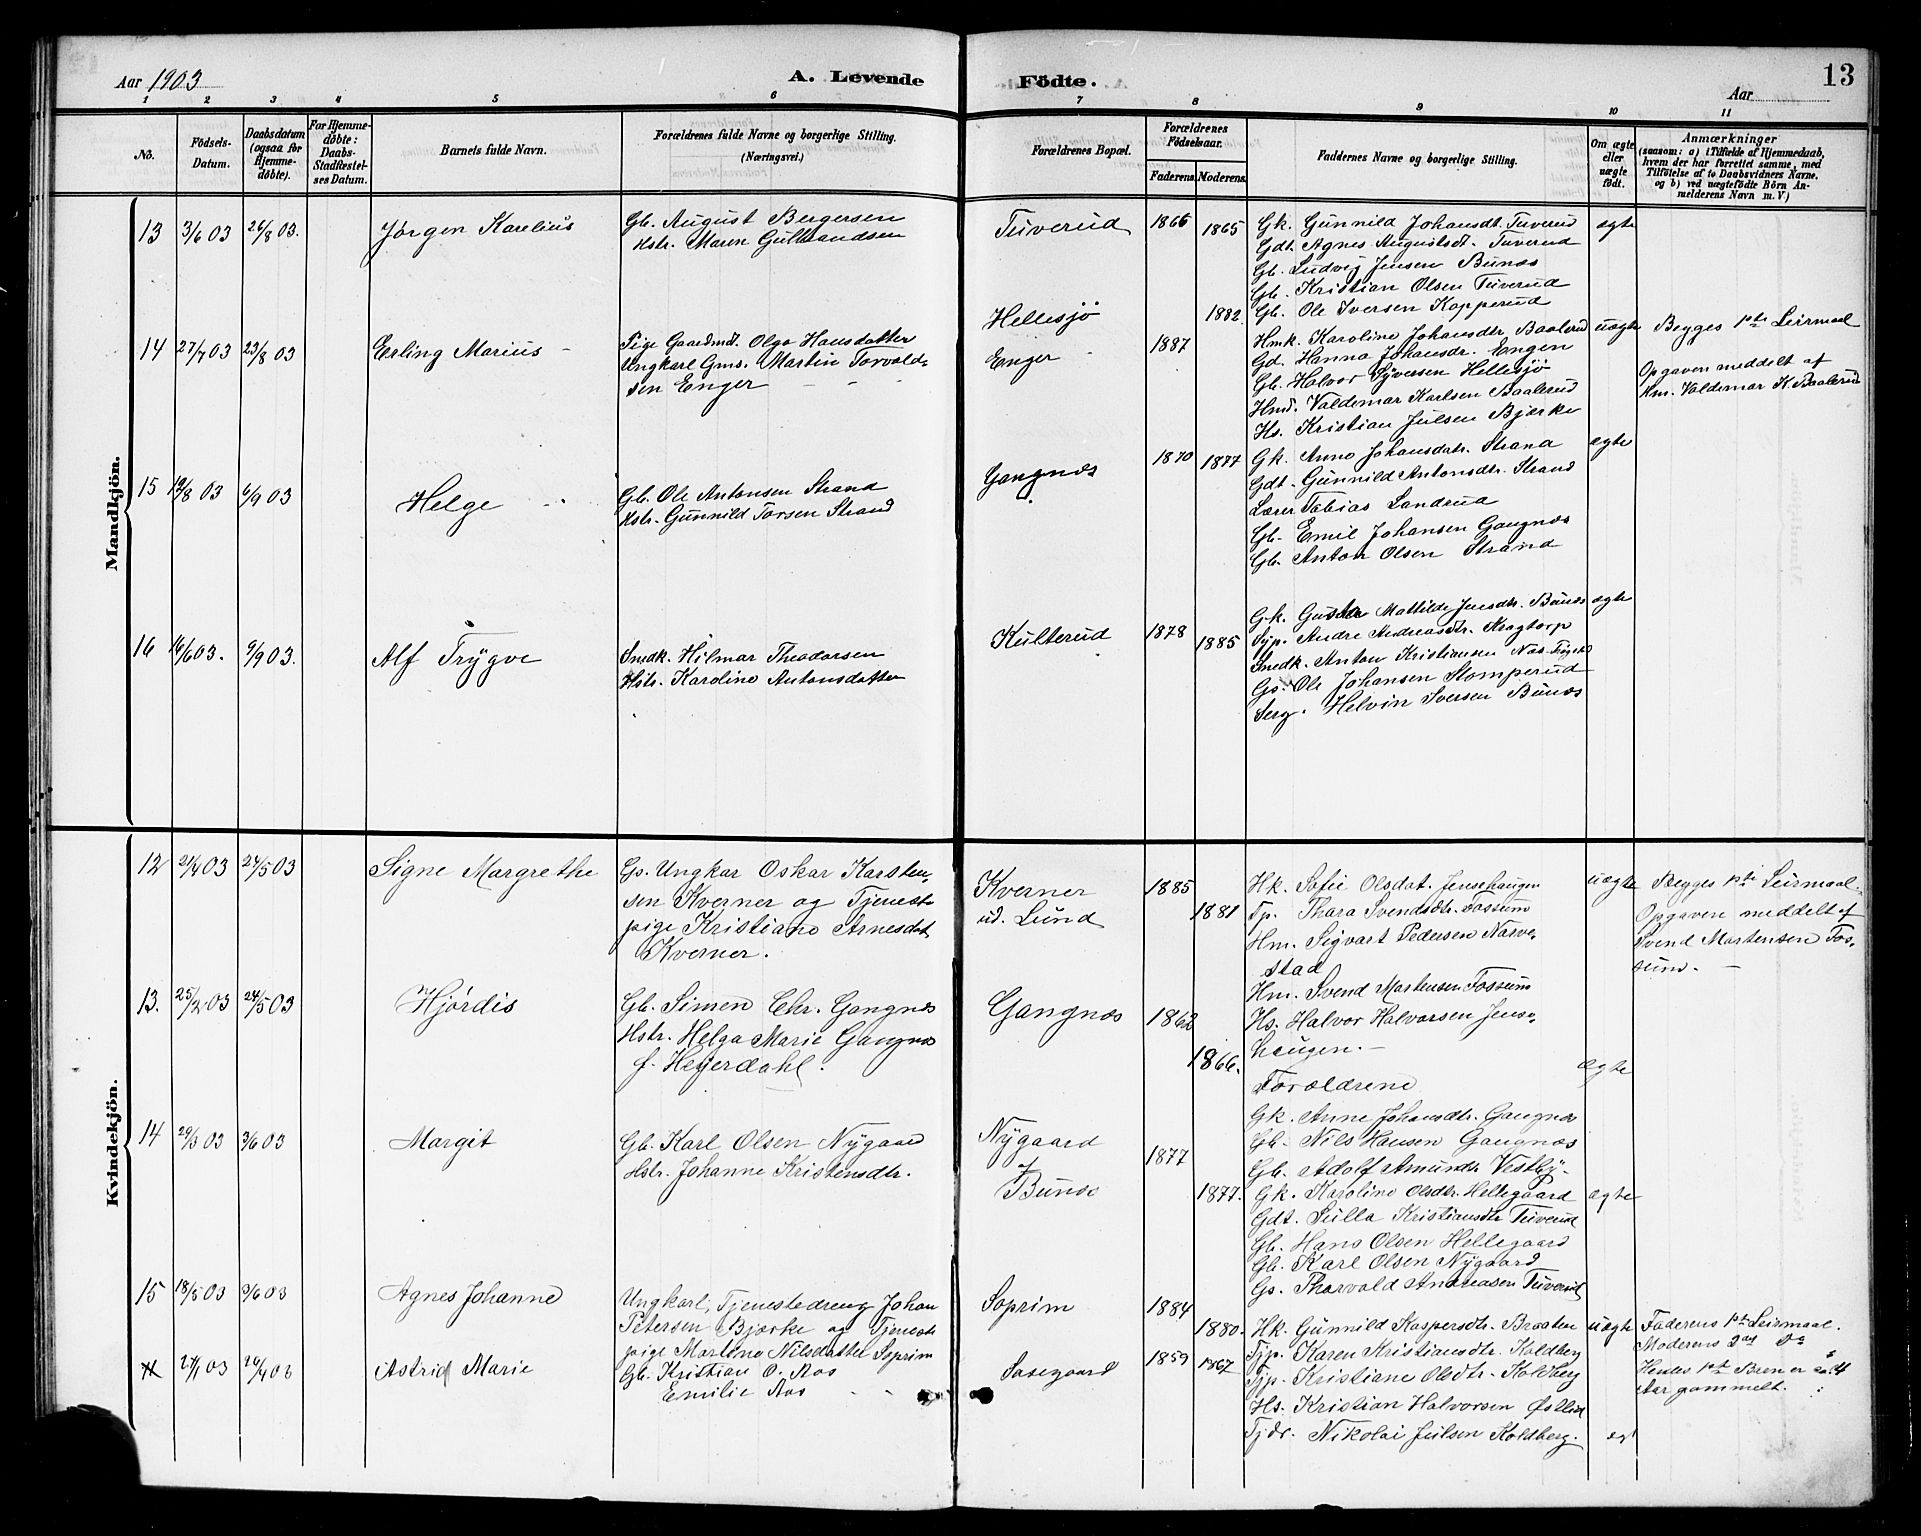 Aar 1903
A. Levende
Födte.
Aar
13
1 2 3 4 5 6 7 8 9 10 11
No.
Födsels-Datum.
Daabsdatum (ogsaa for Hjemme-döbte).
For Hjemme-döbte: Daabs-Stadfæstel-ses Datum.
Barnets fulde Navn.
Forældrenes fulde Navne og borgerlige Stilling.
(Næringsvei.)
Forældrenes Bopæl.
Forældrenes Födselsaar.
Faderens. Moderens.
Faddernes Navne og borgerlige Stilling.
Om ægte eller uægte födt.
Anmærkninger
(saasom: a) i Tilfælde af Hjemmedaab, hvem der har forrettet samme, med Tilföielse af to Daabsvidners Navne, og b) ved uægtefödte Börn An-melderens Navn m. V.)
Mandkjön.
13 3/6 03 26/8 03. Jørgen Karelius
Gb. August Bergersen
Hstr. Maren Gulbrandsen
Tuverud 1866 1865
Gk. Gunnild Johansdt. Tuverud ægte
Gdt. Agnes Augustsdt. Tuverud
Gb. Ludvig Jensen Bunæs
Gb. Kristian Olsen Tuverud
Gb. Ole Iversen Kopperud
14 27/7 03 23/8 03 Erling Marius
Pige Gaardmd. Olga Hansdatter
Ungkarl Gms. Martin Torvald-
sen Enger
Hellesjø 1882
Enger 1887
Hmk. Karoline Johansdtr. Baalerud uægte
Gd. Hanna Johansdr. Engen
Gb. Halvor Syversen Hellesjø
Hmd. Valdemar Karlsen Baalerud
Hs. Kristian Julsen Bjørke
Begges 1ste Leirmaal
Opgaven meddelt af
Hm. Valdemar K. Baalerud
15 19/8 03 6/9 03 Helge
Gb. Ole Antonsen Strand
Hstr. Gunnild Torsen Strand
Gangnæs 1870 1877
Gk. Anne Johansdatr. Strand ægte
Gdt. Gunnild Antonsdtr. Strand
Lærer Tobias Sandrud
Gb. Emil Johansen Gangnæs
Gb. Anton Olsen Strand
16 16/6 03. 9/9 03. Alf Trygve
Snedk. Hilmar Theodorsen
Hstr. Karoline Antonsdatter
Kulterud 1878 1885
Gk. Gusta Mathilde Jensdtr. Bunæs ægte
Syp. Andre Andreasdtr. Kragtorp
Snedk. Anton Kristiansen
Gs. Ole Johansen Stomperud
Serg. Helvin Iversen Bunæs
Kvindekjön.
12 21/4 03 24/5 03 Signe Margrethe
Gs. Ungkar Oskar Karsten-
sen Kverner og Tjenest-
pige Kristiane Arnesdat
Kverner.
Kverner 1885
ud. Lund 1881
Hk. Sofie Olsdat. Jensehaugen uægte
Tp. Thara Svendsdtr. Fossum
Hm. Sigvart Pedersen Narve-
stad
Hm. Svend Martensen Fossum
Hs. Halvor Halvorsen Jense-
haugen.
Begges 1ste Leirmaal.
Opgaven meddelt af
Svend Martensen Fos-
sum.
13. 25/2 03 24/5 03 Hjørdis
Gb. Simen Chr. Gangnæs
Hstr. Helga Marie Gangnæs
f. Heyerdahl.
Gangnæs 1862 1866.
Forældrene ægte
Gk. Anne Johansdtr. Gangnæs
Gb. Nils Hansen Gangnæs
Gb. Adolf Amundr. Vestby
14 29/3 03 3/6 03 Margit
Gb. Karl Olsen Nygaard
Hstr. Johanne Kristensdtr.
Nygaard
af
Bunæs 1877 1877.
Gk. Karoline Olsdtr. Hellegaard ægte
Gdt. Julla Kristiansdtr Tuverud
Gb. Hans Olsen Hellegaard
Gb. Karl Olsen Nygaard
Gs. Thorvald Andreasen Tuverud
15 18/5 03 3/6 03 Agnes Johanne
Ungkarl, Tjenestedreng Johan
Petersen Bjørke og Tjenest
pige Marlene Nilsdatter Soprim
Soprim 1884 1880.
Hk. Gunnild Kaspersdtr. Braaten uægte
Tjp. Karen Kristiansdtr. Koldberg
Tjp. Kristiane Olsdtr. Koldberg
Hs. Kristian Halvorsen Østlid
Tjdr. Nikolai Julsen Koldberg.
Faderens 1ste Leirmaal.
Moderens 2det Do
Hendes 1ste Barn er ca. 4
Aar gammelt.
27/1 03 26/4 03 Astrid Marie
Gb. Kristian O. Aas
Emilie Aas
Sosegaard 1859 1867 ægt